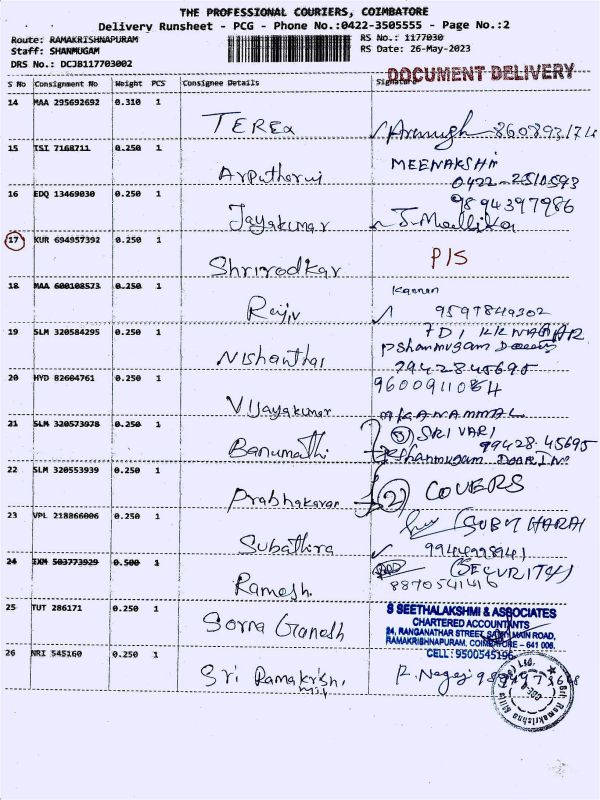 THE PROFESSIONAL COURIERS, COIMBATORE
Delivery Runsheet - PCG - Phone No.:0422-3505555 - Page No.:2
Route: RAMAKRISHNAPURAM RS No.: 1177030
Staff: SHANMUGAM RS Date: 26-May-2023
DRS No.: DCJB117703002
DOCUMENT DELIVERY
S No Consignment No Weight PCS Consignee Details Signature
14 MAA 295692692 0.310 1
TEREX
15 ISI 7168711 0.250 1 MEENAKSHI
0422-2510593
16 EDQ 13469030 0.250 1 9894397986
Jayakumar J. Mallika
17 KUR 694957392 0.250 1
Shrirodkar P/S
18 MAA 600108573 0.250 1 Kannan
Rajiv 9597849302
7D1 KK NAGAR
19 SLM 320584295 0.250 1 P Shanmugam
Nishanthi
20 HYD 82604761 0.250 1
Vijayakumar
21 SLM 320573978 0.250 1 SRI VARI
Banumathi 99428-45695
22 SLM 320553939 0.250 1
Prabhakaran 2 COVERS
23 VPL 218866006 0.250 1
Subathira
24 IXM 503773929 0.500 1 (SECURITY)
Ramesh 8870541416
25 TUT 286171 0.250 1
Sorna Ganesh
S SEETHALAKSHMI & ASSOCIATES
CHARTERED ACCOUNTANTS
24, RANGANATHAR STREET, MAIN ROAD,
RAMAKRISHNAPURAM, COIMBATORE - 641 006.
CELL: 9500545196
26 NRI 545160 0.250 1
Sri Ramakrishna